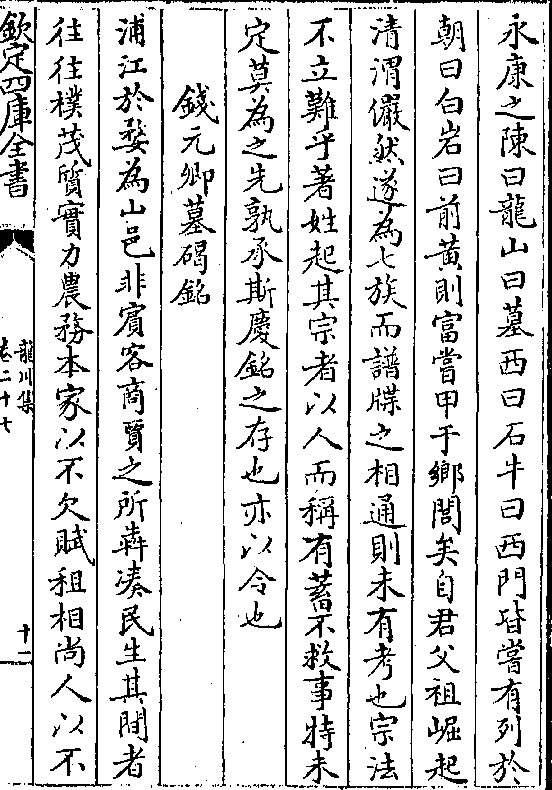 永康之陳曰龍山曰墓西曰石牛曰西門皆嘗有列於
朝曰白岩曰前黃則富嘗甲于鄉閭矣自君父祖崛起
清渭儼然遂為七族而譜牒之相通則未有考也宗法
不立難乎著姓起其宗者以人而稱有蓄不救事特未
定莫為之先孰承斯慶銘之存也亦以令也
錢元卿墓碣銘
浦江於婺為山邑非賓客商賈之所犇凑民生其間者
往往樸茂質實力農務本家以不欠賦租相尚人以不
欽定四庫全書
龍川集
卷二十七
十一